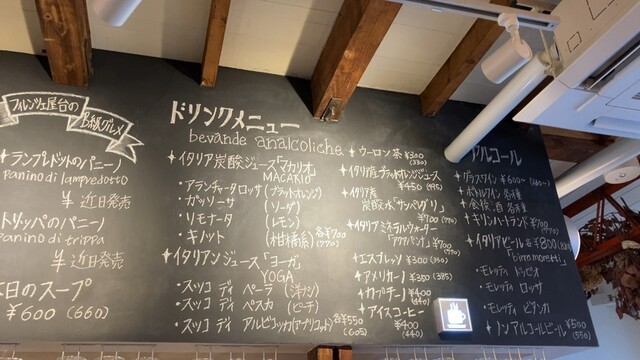 フィレンツェ屋台の
B級グルメ
✦ランプレドットのパニーノ
panino di lampredotto
¥ 近日発売
✦トリッパのパニーノ
panino di trippa
¥ 近日発売
本日のスープ
¥600 (660)
ドリンクメニュー
bevande analcoliche
✦イタリア炭酸ジュース「マカリオ」
MACARIO
・アランチャータロッサ (ブラッドオレンジ)
・ガッソーサ (ソーダ)
・リモナータ (レモン)
・キノット (柑橘系) 各¥700
(770)
✦イタリアンジュース「ヨーガ」
YOGA
・スッコ ディ ペーラ (洋ナシ)
・スッコ ディ ペスカ (ピーチ)
・スッコ ディ アルビコッカ (アプリコット) 各¥550
(605)
✦ウーロン茶 ¥300
(330)
✦イタリア産ブラッドオレンジジュース
¥450 (495)
✦イタリア産
炭酸水「サンペレグリノ」
¥700 (770)
✦イタリアミネラルウォーター
「アクアパンナ」 ¥700
(770)
✦エスプレッソ ¥300 (330)
✦アメリカーノ ¥350 (385)
✦カプチーノ ¥400
(440)
✦アイスコーヒー
¥400
(440)
アルコール
✦グラスワイン ¥600〜 (660〜)
✦ボトルワイン 各種
✦食後酒 各種
✦キリンハートランド ¥700
(770)
✦イタリアビール 各¥800 (880)
「birra moretti」
・モレッティ ドッピオ
・モレッティ ロッサ
・モレッティ ビアンカ
✦ノンアルコールビール ¥500
(550)